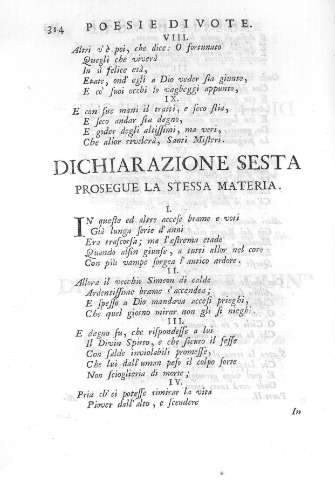 314 POESIE DIVOTE.
VIII.
Altri v'è poi, che dice: O fortunato
Quegli che viverà
In sì felice età,
Etate, ond' egli a Dio veder sia giunto,
E co' suoi occhi lo vagheggi appunto,
IX.
E con sue mani il tratti, e seco stia,
E seco andar sia degno,
E goder degli altissimi, ma veri,
Che allor rivelerà, Santi Misterj.
DICHIARAZIONE SESTA
PROSEGUE LA STESSA MATERIA.
I.
IN queste ed altre accese brame e voti
Già lunga serie d'anni
Era trascorsa; ma l'estrema etade
Quando alfin giunse, a tutti allor nel core
Con più vampe sorgea l'antico ardore.
II.
Allora il vecchio Simeon di calde
Ardentissime brame s'accendea;
E spesso a Dio mandava accesi prieghi,
Che quel giorno mirar non gli si nieghi.
III.
E degno fu, che rispondesse a lui
Il Divin Spirto, e che sicuro il fesse
Con salde inviolabili promesse,
Che lui dall'uman peso il colpo forte
Non scioglieria di morte;
IV.
Pria ch'ei potesse rimirar la vita
Piover dall'alto, e scendere
In